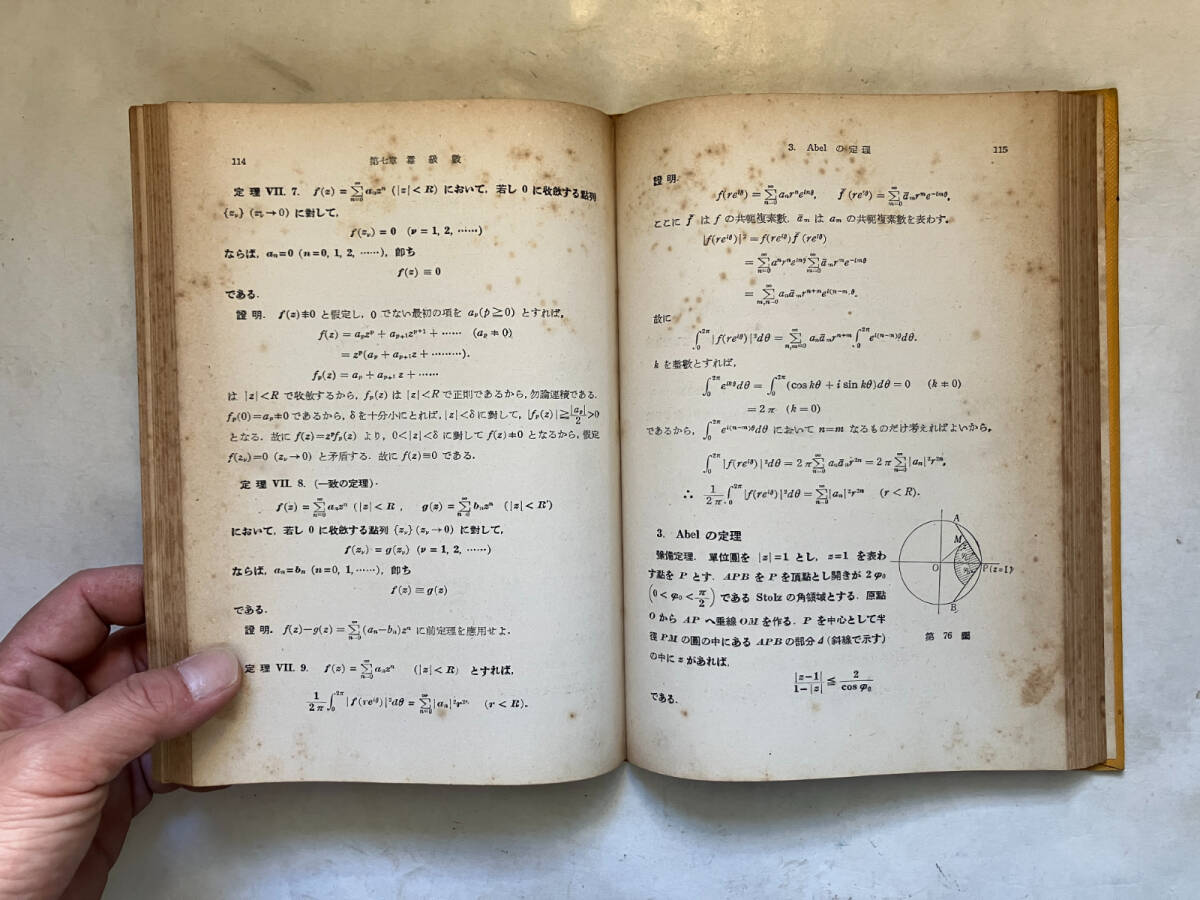 114 第七章 冪級數
定理 VII. 7. f(z) = ∑_{n=0}^{∞} a_n z^n (|z|<R) において, 若し 0 に收斂する點列
{z_ν} (z_ν→0) に對して,
f(z_ν) = 0 (ν = 1, 2, ……)
ならば, a_n=0 (n=0, 1, 2, ……), 卽ち
f(z) ≡ 0
である.
證明. f(z)≢0 と假定し, 0 でない最初の項を a_p(p≧0) とすれば,
f(z) = a_p z^p + a_{p+1}z^{p+1} + …… (a_p ≠ 0)
= z^p(a_p + a_{p+1}z + ………).
f_p(z) = a_p + a_{p+1} z + ……
は |z|<R で收斂するから, f_p(z) は |z|<R で正則であるから, 勿論連續である.
f_p(0)=a_p≠0 であるから, δ を十分小にとれば, |z|<δ に對して, |f_p(z)|≧|a_p|/2>0
となる. 故に f(z)=z^p f_p(z) より, 0<|z|<δ に對して f(z)≠0 となるから, 假定
f(z_ν)=0 (z_ν→0) と矛盾する. 故に f(z)≡0 である.
定理 VII. 8. (一致の定理).
f(z) = ∑_{n=0}^{∞} a_n z^n (|z|<R), g(z) = ∑_{n=0}^{∞} b_n z^n (|z|<R')
において, 若し 0 に收斂する點列 {z_ν} (z_ν→0) に對して,
f(z_ν) = g(z_ν) (ν = 1, 2, ……)
ならば, a_n=b_n (n=0, 1, ……), 卽ち
f(z) ≡ g(z)
である.
證明. f(z)−g(z) = ∑_{n=0}^{∞} (a_n−b_n)z^n に前定理を應用せよ.
定理 VII. 9. f(z) = ∑_{n=0}^{∞} a_n z^n (|z|<R) とすれば,
1/2π ∫_0^{2π} |f(re^{iθ})|²dθ = ∑_{n=0}^{∞} |a_n|²r^{2n}. (r<R).
3. Abel の定理 115
證明.
f(re^{iθ}) = ∑_{n=0}^{∞} a_n r^n e^{inθ}, f̄(re^{iθ}) = ∑_{n=0}^{∞} ā_m r^m e^{−imθ},
ここに f̄ は f の共軛複素數, ā_m は a_m の共軛複素數を表わす.
|f(re^{iθ})|² = f(re^{iθ}) f̄(re^{iθ})
= ∑_{n=0}^{∞} a^n r^n e^{inθ} ∑_{m=0}^{∞} ā_m r^m e^{−imθ}
= ∑_{m,n=0}^{∞} a_n ā_m r^{n+m} e^{i(n−m)θ}.
故に
∫_0^{2π} |f(re^{iθ})|²dθ = ∑_{n,m=0}^{∞} a_n ā_m r^{n+m} ∫_0^{2π} e^{i(n−m)θ}dθ.
k を整數とすれば,
∫_0^{2π} e^{ikθ}dθ = ∫_0^{2π} (cos kθ + i sin kθ)dθ = 0 (k ≠ 0)
= 2π (k = 0)
であるから, ∫_0^{2π} e^{i(n−m)θ}dθ において n=m なるものだけ考えればよいから,
∫_0^{2π} |f(re^{iθ})|²dθ = 2π ∑_{n=0}^{∞} a_n ā_n r^{2n} = 2π ∑_{n=0}^{∞} |a_n|²r^{2n},
∴ 1/2π ∫_0^{2π} |f(re^{iθ})|²dθ = ∑_{n=0}^{∞} |a_n|²r^{2n} (r<R).
3. Abel の定理
豫備定理. 單位圓を |z|=1 とし, z=1 を表わ
す點を P とす. APB を P を頂點とし開きが 2φ₀
(0<φ₀<π/2) である Stolz の角領域とする. 原點
O から AP へ垂線 OM を作る. P を中心として半
徑 PM の圓の中にある APB の部分 Δ (斜線で示す)
の中に z があれば,
|z−1|/1−|z| ≦ 2/cos φ₀
である.
A
M
z
O
P(z=1)
B
第 76 圖